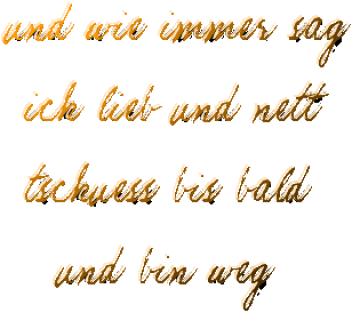 und wie immer sag
ich lieb und nett
tschuess bis bald
und bin weg